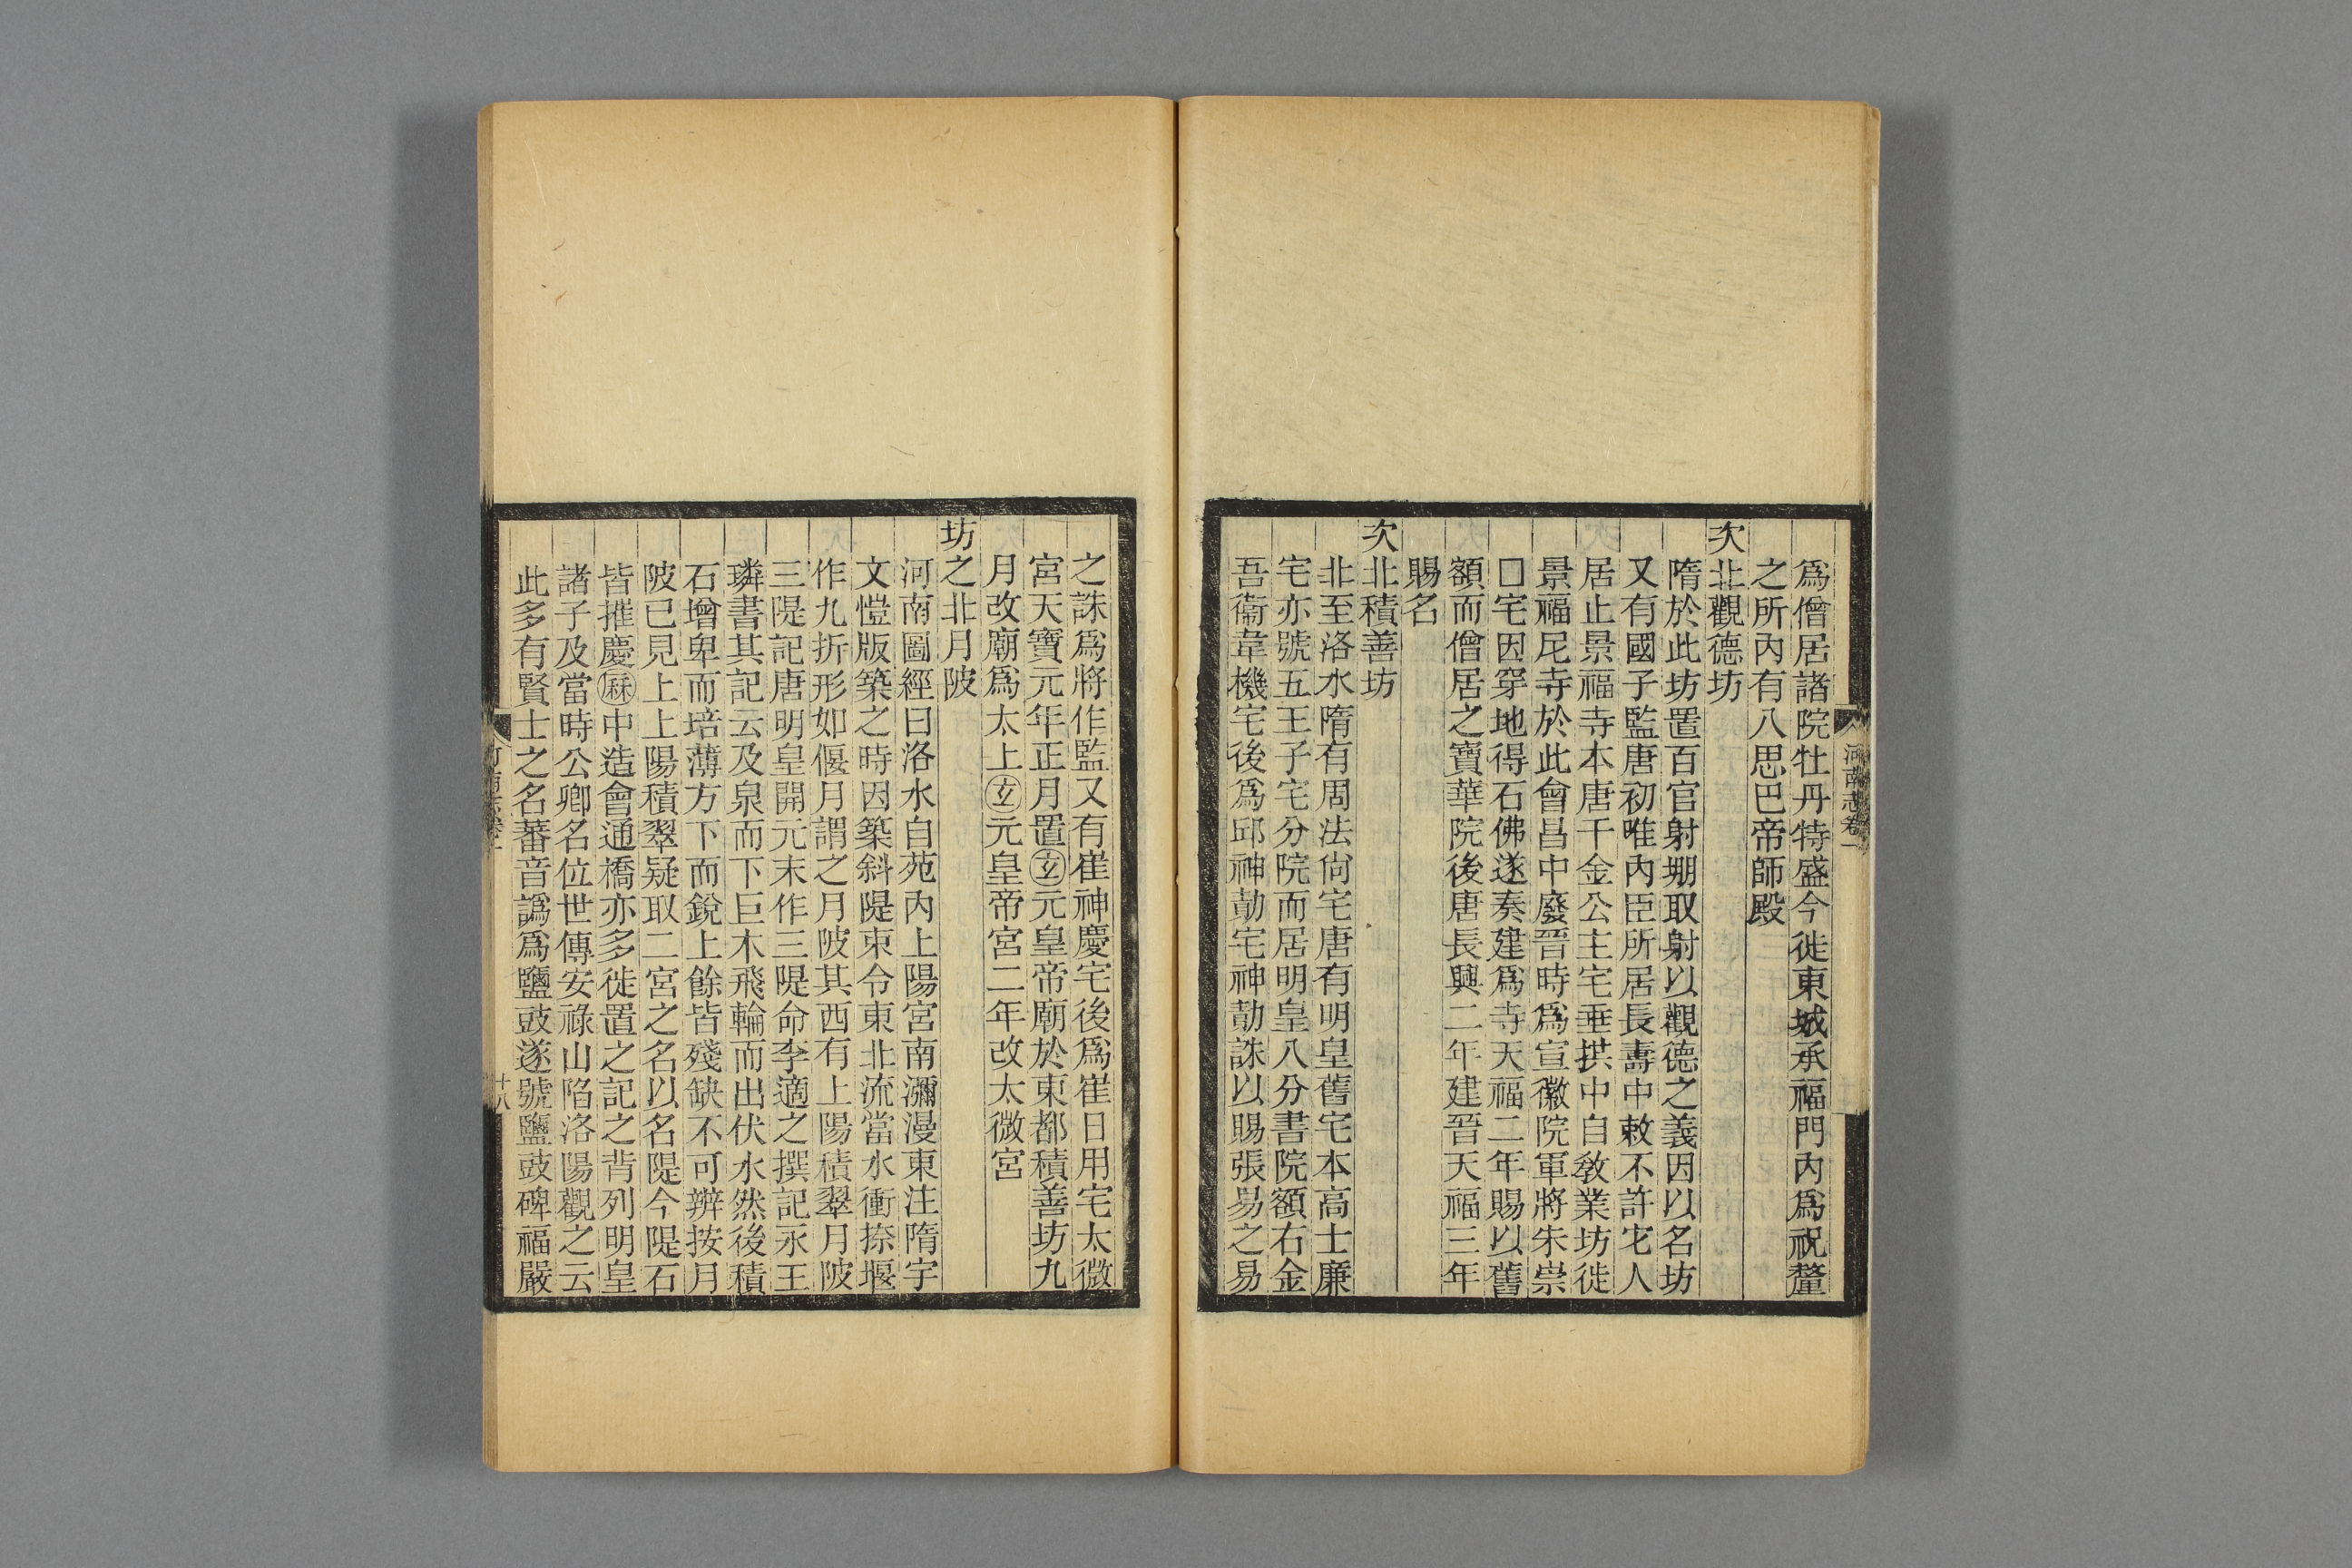 河南志卷一
爲僧居諸院牡丹特盛今徙東城承福門內爲祝釐
之所內有八思巴帝師殿
次北觀德坊
隋於此坊置百官射堋取射以觀德之義因以名坊
又有國子監唐初唯內臣所居長壽中敕不許宅人
居止景福寺本唐千金公主宅垂拱中自敎業坊徙
景福尼寺於此會昌中廢晉時爲宣徽院軍將朱崇
□宅因穿地得石佛遂奏建爲寺天福二年賜以舊
額而僧居之寶華院後唐長興二年建晉天福三年
賜名
次北積善坊
北至洛水隋有周法尙宅唐有明皇舊宅本高士廉
宅亦號五王子宅分院而居明皇八分書院額右金
吾衞韋機宅後爲邱神勣宅神勣誅以賜張易之易
之誅爲將作監又有崔神慶宅後爲崔日用宅太微
宮天寶元年正月置玄元皇帝廟於東都積善坊九
月改廟爲太上玄元皇帝宮二年改太微宮
坊之北月陂
河南圖經曰洛水自苑內上陽宮南瀰漫東注隋宇
文愷版築之時因築斜隄束令東北流當水衝捺堰
作九折形如偃月謂之月陂其西有上陽積翠月陂
三隄記唐明皇開元末作三隄命李適之撰記永王
璘書其記云及泉而下巨木飛輪而出伏水然後積
石增卑而培薄方下而銳上餘皆殘缺不可辨按月
陂已見上上陽積翠疑取二宮之名以名隄今隄石
皆摧慶厤中造會通橋亦多徙置之記之背列明皇
諸子及當時公卿名位世傳安祿山陷洛陽觀之云
此多有賢士之名蕃音譌爲鹽豉遂號鹽豉碑福嚴
十八